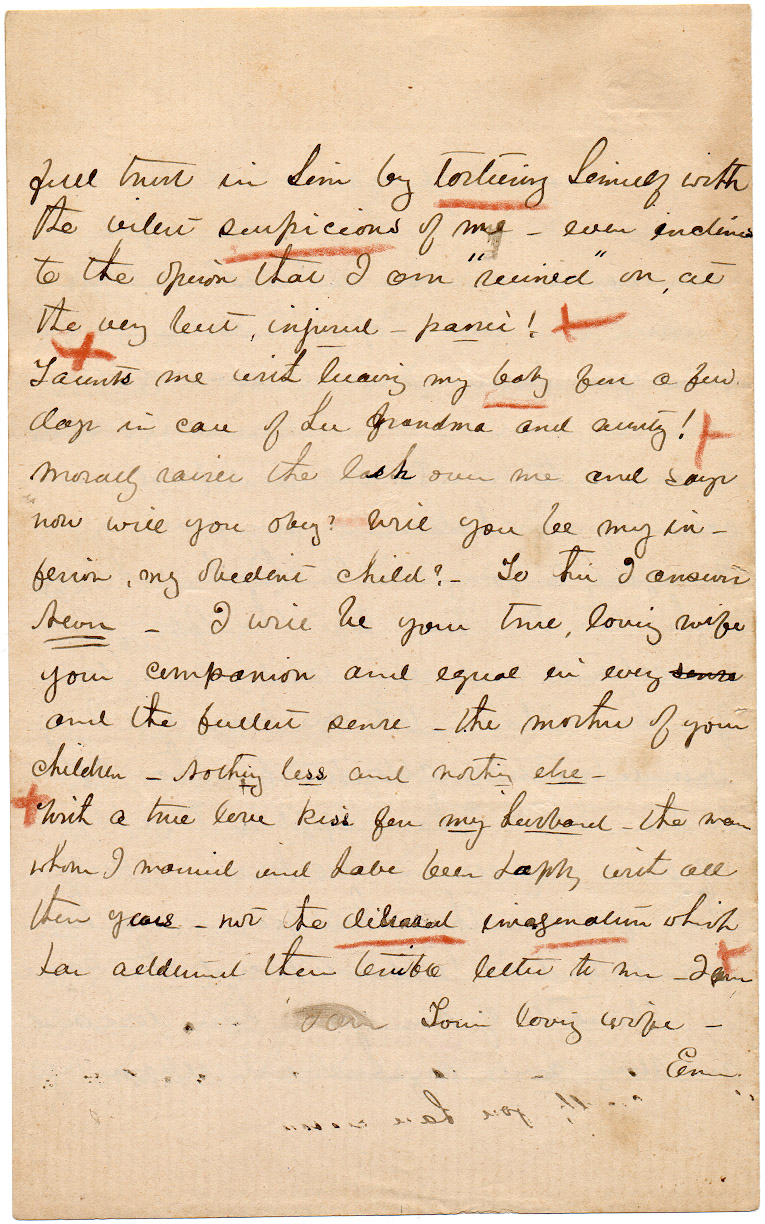 full trust in him by torturing himself with
the vilest suspicions of me – even inclines
to the opinion that I am "ruined" or, at
the very least, injured –
Taunts me with leaving my baby for a few
days in care of her grandma and aunty!
morally raises the lash over me and says
now will you obey? Will you be my in-
ferior, my obedient child? – To this I answer
Never – I will be your true, loving wife
your companion and equal in every sense
and the fullest sense – the mother of your
children – Nothing less and nothing else –
With a true love kiss for my husband – the man
whom I married and have been happy with all
these years – not the diseased imagination which
has addressed these terrible letters to me – I am
I am Your loving wife –
Em